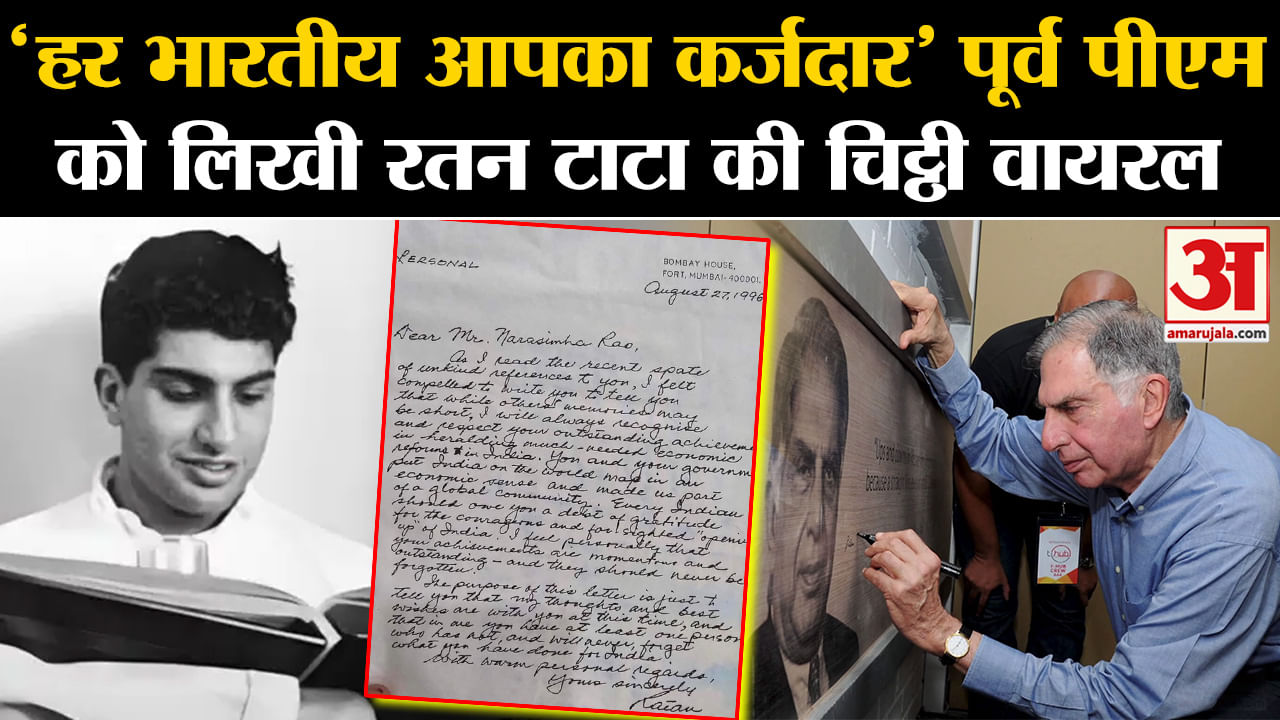 ‘हर भारतीय आपका कर्जदार’ पूर्व पीएम
को लिखी रतन टाटा की चिट्ठी वायरल
PERSONAL
BOMBAY HOUSE,
FORT, MUMBAI-400001.
August 27, 1996
Dear Mr. Narasimha Rao,
As I read the recent spate
of unkind references to you, I felt
compelled to write you to tell you
that while others' memories may
be short, I will always recognise
and respect your outstanding achieveme
in heralding much-needed economic
reforms in India. You and your governm
put India on the world map in an
economic sense and made us part
of a global community. Every Indian
should owe you a debt of gratitude
for the courageous and far sighted "openin
up" of India. I feel personally that
your achievements are momentous and
outstanding - and they should never be
forgotten.
The purpose of this letter is just to
tell you that my thoughts and best
wishes are with you at this time, and
that in me you have at least one person
who has not, and will never, forget
what you have done for India.
With warm personal regards,
Yours sincerely
Ratan
अ
amarujala.com
"Ups and
because a straig
t hub
T-HUB
CREW